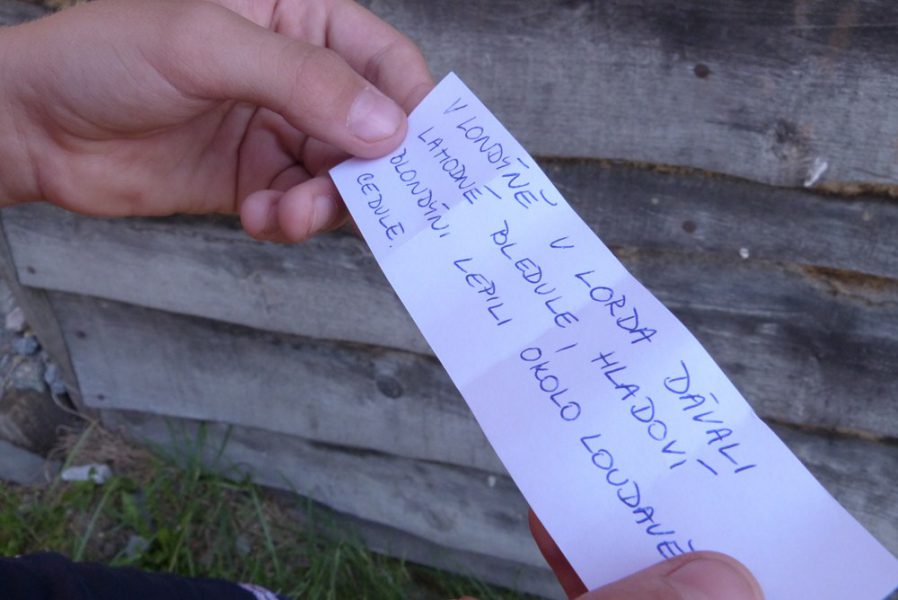 V LONDÝNĚ V LORDA DÁVALI
LAHODNÉ BLEDULE I HLADOVÍ
BLONDÝNI LEPILI OKOLO LOUDAVĚ
CEDULE.